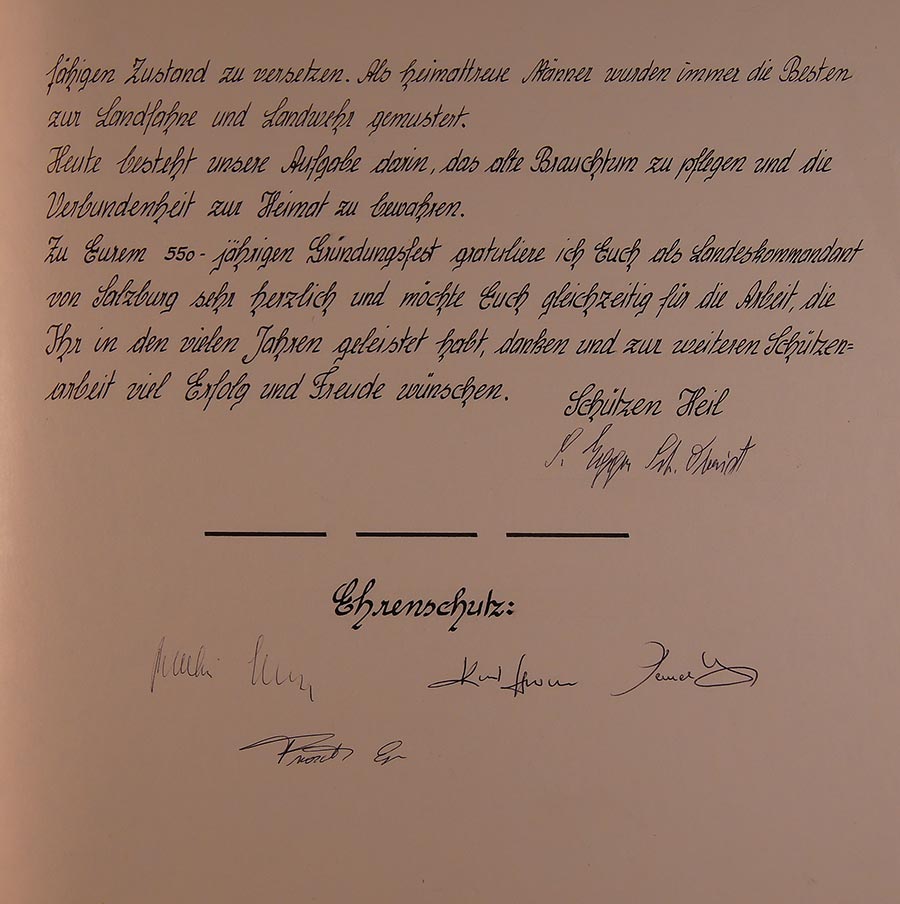 fähigen Zustand zu versetzen. Als heimattreue Männer wurden immer die Besten
zur Landfahne und Landwehr gemustert.
Heute besteht unsere Aufgabe darin, das alte Brauchtum zu pflegen und die
Verbundenheit zur Heimat zu bewahren.
Zu Eurem 550-jährigen Gründungsfest gratuliere ich Euch als Landeskommandant
von Salzburg sehr herzlich und möchte Euch gleichzeitig für die Arbeit, die
Ihr in den vielen Jahren geleistet habt, danken und zur weiteren Schützen=
arbeit viel Erfolg und Freude wünschen.
Schützen Heil
Egger Sch. Oberst
Ehrenschutz: